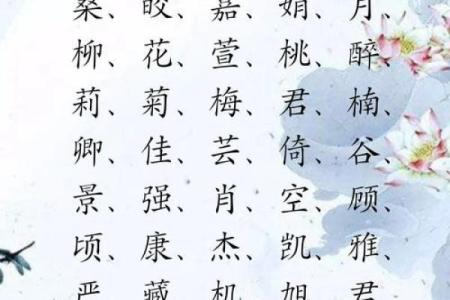 桑、皎、嘉、娟、月、
柳、花、萱、桃、醉、
莉、菊、梅、君、楠、
卿、佳、芸、倚、谷、
景、强、肖、空、顾、
顷、康、杰、凯、雅、
严、藏、机、旭、君、